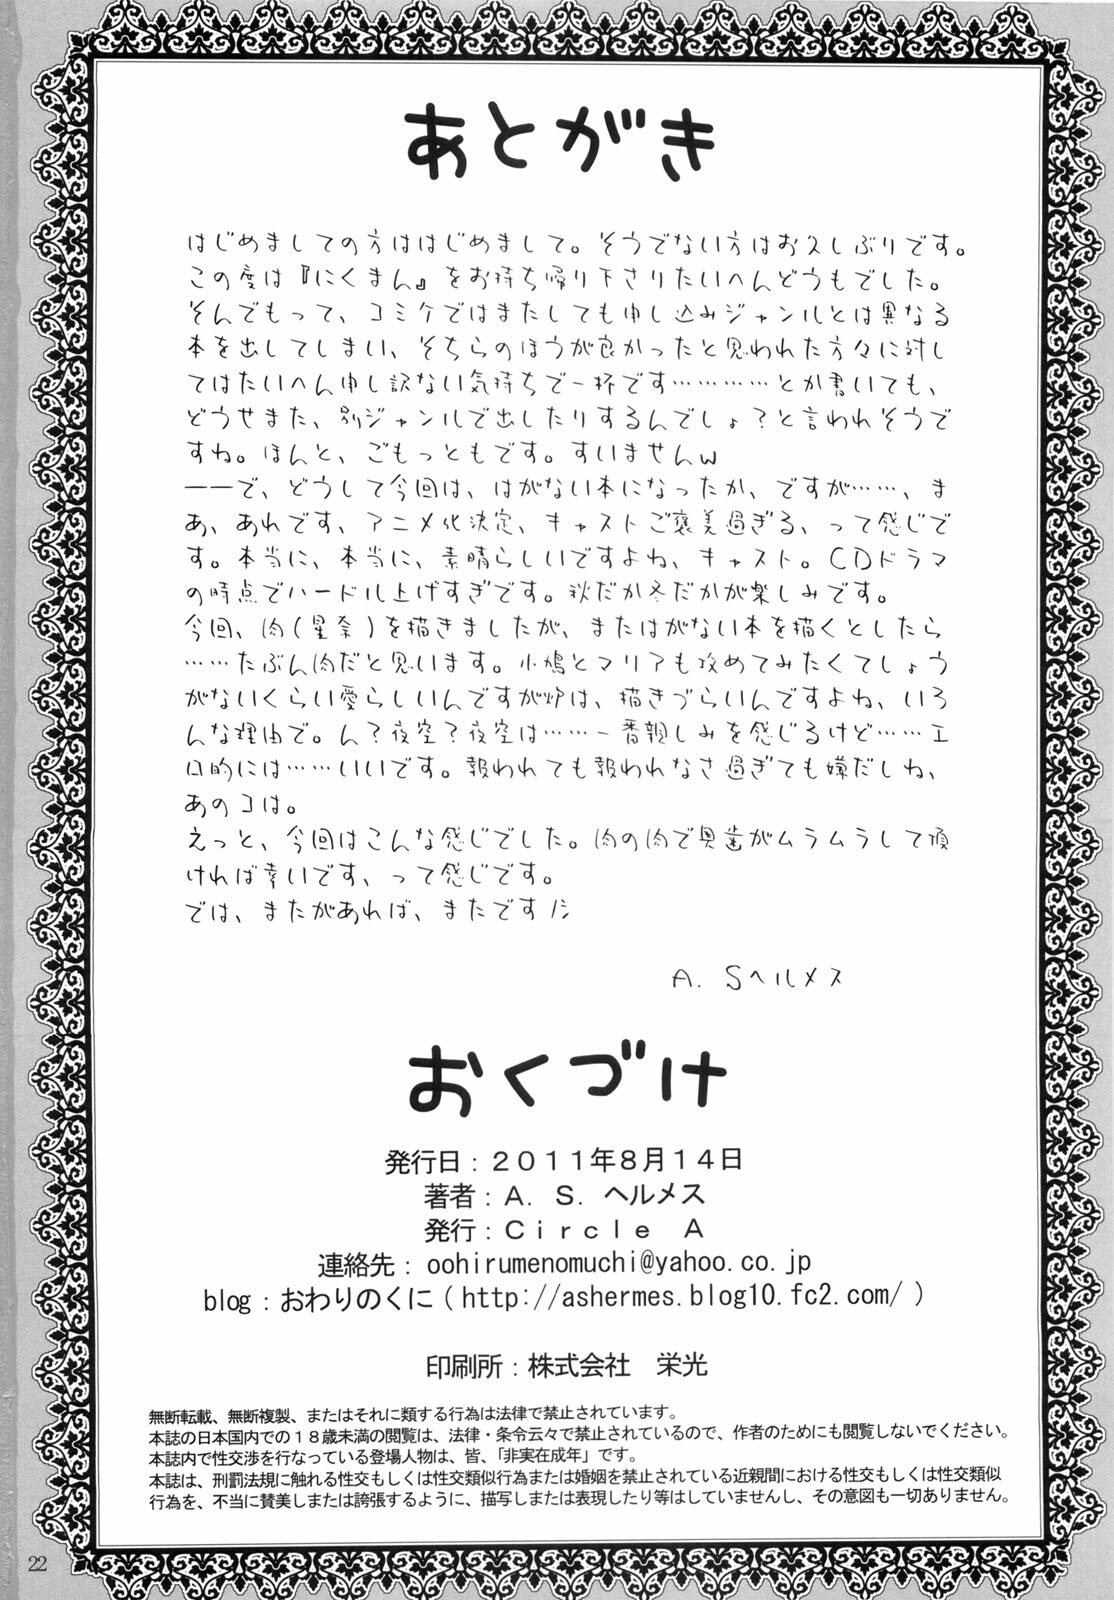 あとがき
はじめましての方ははじめまして。そうでない方はお久しぶりです。
この度は『にくまん』をお持ち帰り下さりたいへんどうもでした。
そんでもって、コミケではまたしても申し込みジャンルとは異なる
本を出してしまい、そちらのほうが良かったと思われた方々に対し
てはたいへん申し訳ない気持ちで一杯です…………とか書いても、
どうせまた、別ジャンルで出したりするんでしょ？と言われそうで
すね。ほんと、ごもっともです。すいませんw
――で、どうして今回は、はがない本になったか、ですが……、ま
あ、あれです、アニメ化決定、キャストご褒美過ぎる、って感じで
す。本当に、本当に、素晴らしいですよね、キャスト。CDドラマ
の時点でハードル上げすぎです。秋だか冬だかが楽しみです。
今回、肉(星奈)を描きましたが、またはがない本を描くとしたら
……たぶん肉だと思います。小鳩とマリアも攻めてみたくてしょう
がないくらい愛らしいんですが炉は、描きづらいんですよね、いろ
んな理由で。ん？夜空？夜空は……一番親しみを感じるけど……エ
ロ的には……いいです。報われても報われなさ過ぎても嫌だしね、
あのコは。
えっと、今回はこんな感じでした。肉の肉で奥歯がムラムラして頂
ければ幸いです、って感じです。
では、またがあれば、またですノシ
A. Sヘルメス
おくづけ
発行日：２０１１年８月１４日
著者：Ａ．Ｓ．ヘルメス
発行：Ｃｉｒｃｌｅ　Ａ
連絡先：oohirumenomuchi@yahoo.co.jp
blog：おわりのくに（http://ashermes.blog10.fc2.com/）
印刷所：株式会社　栄光
無断転載、無断複製、またはそれに類する行為は法律で禁止されています。
本誌の日本国内での１８歳未満の閲覧は、法律・条令云々で禁止されているので、作者のためにも閲覧しないでください。
本誌内で性交渉を行なっている登場人物は、皆、「非実在成年」です。
本誌は、刑罰法規に触れる性交もしくは性交類似行為または婚姻を禁止されている近親間における性交もしくは性交類似
行為を、不当に賛美しまたは誇張するように、描写しまたは表現したり等はしていませんし、その意図も一切ありません。
22